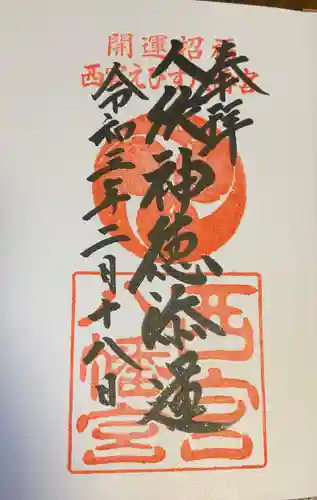 開運招福
西宮えびす
奉拝
人依神徳添運
令和三年二月十八日
西宮
八幡宮